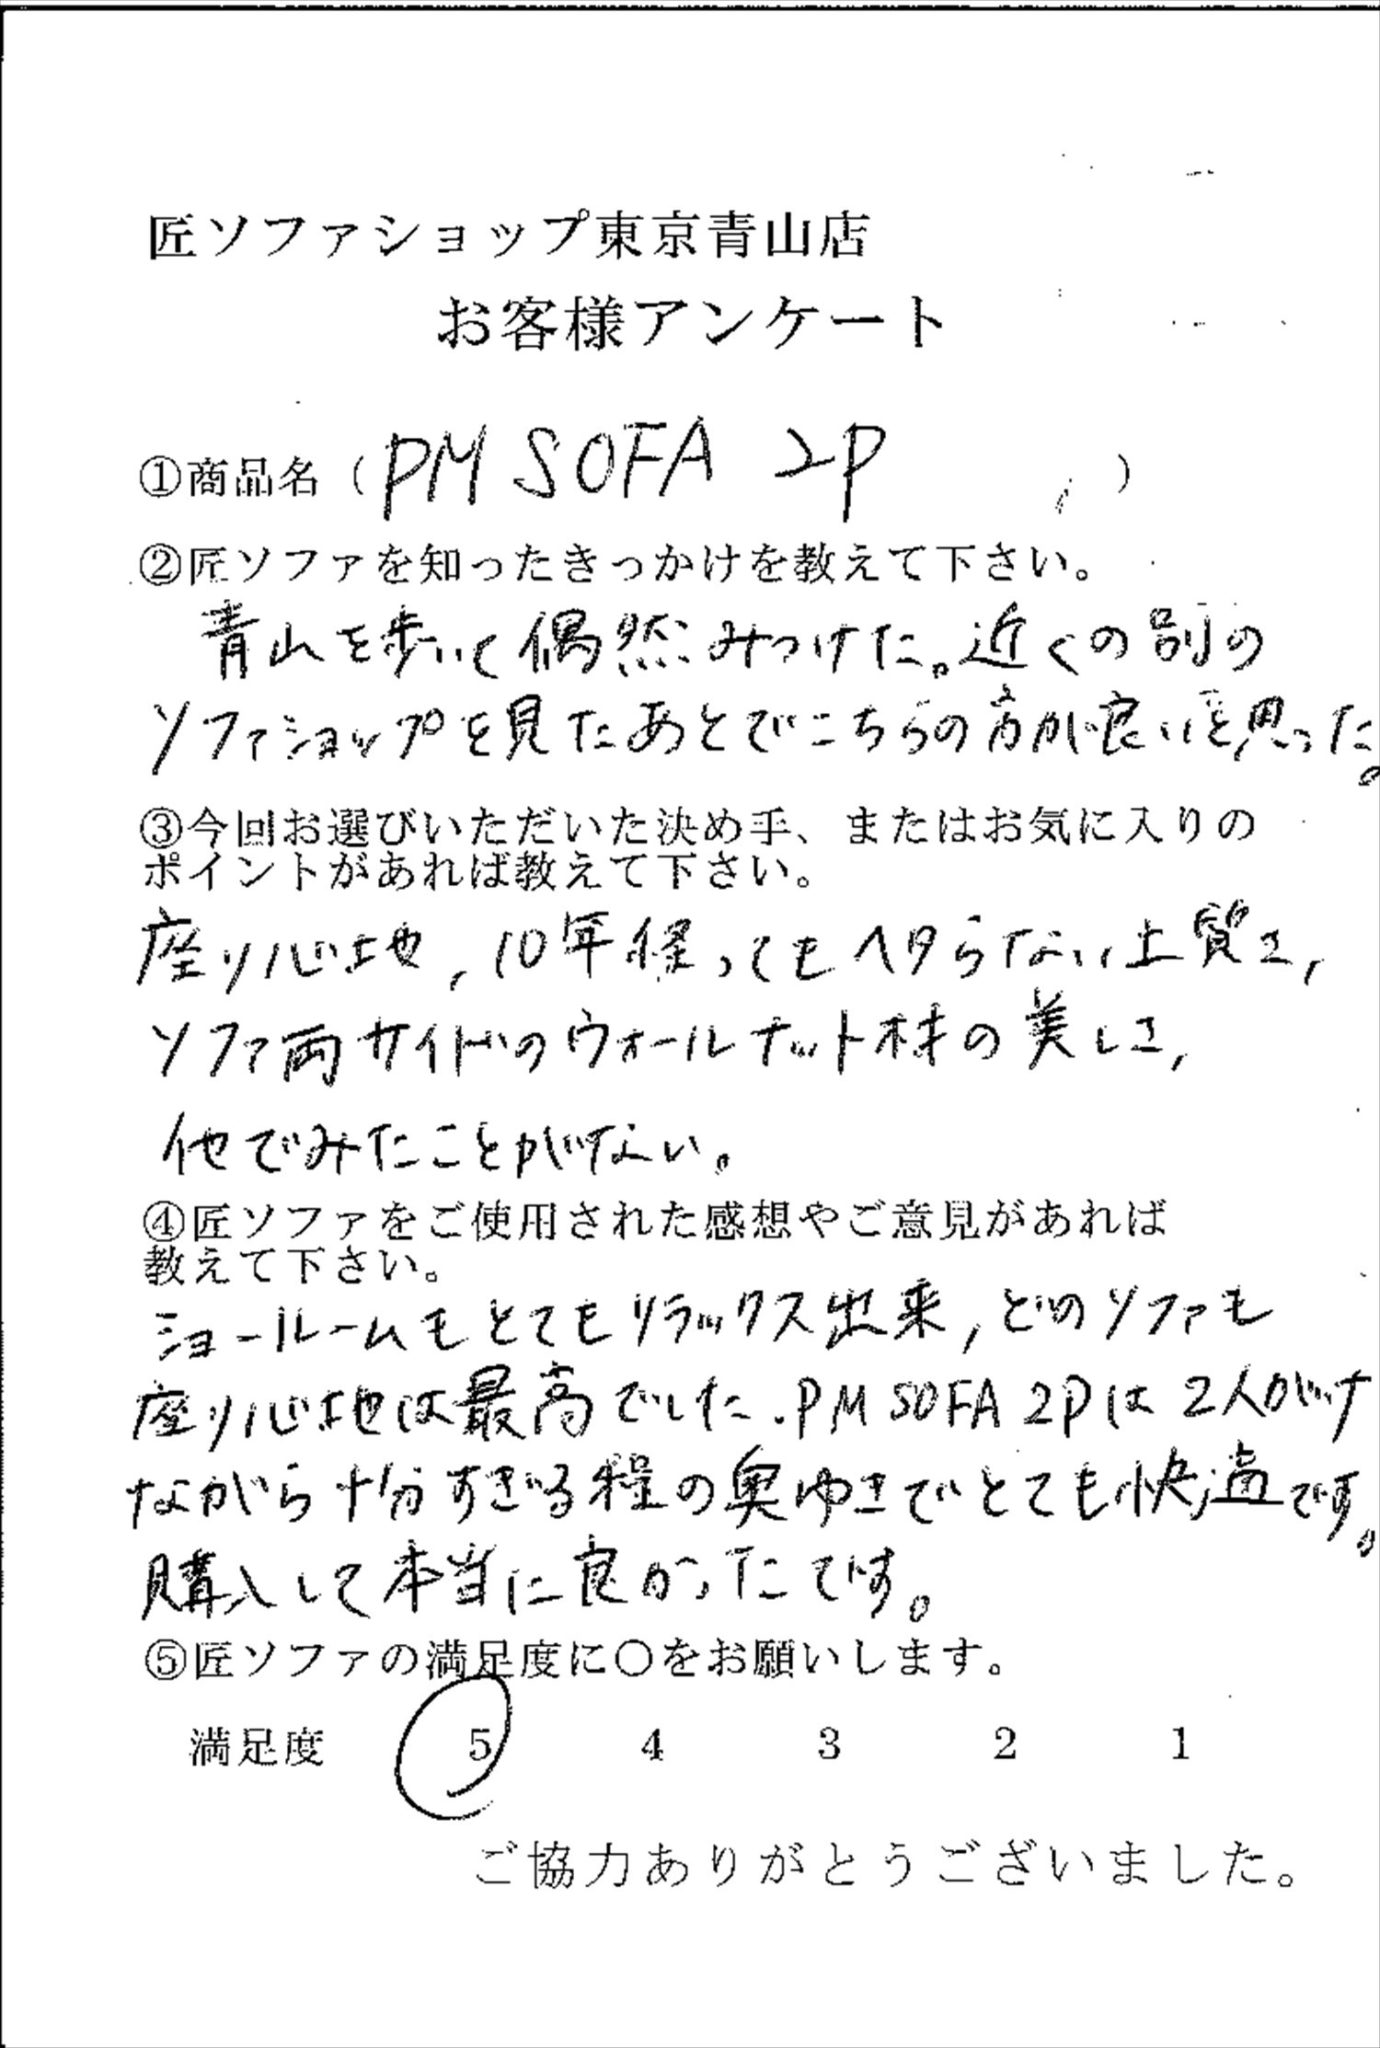 匠ソファショップ東京青山店
お客様アンケート
①商品名（PM SOFA 2P）
②匠ソファを知ったきっかけを教えて下さい。
青山を歩いて偶然みつけた。近くの別の
ソファショップを見たあとでこちらの方が良いと思った。
③今回お選びいただいた決め手、またはお気に入りの
ポイントがあれば教えて下さい。
座り心地，10年経ってもヘタらない上質さ，
ソファ両サイドのウォールナット木材の美しさ，
他でみたことがない。
④匠ソファをご使用された感想やご意見があれば
教えて下さい。
ショールームもとてもリラックス出来，どのソファも
座り心地は最高でした．PM SOFA 2Pは2人がけ
ながら十分すぎる程の奥ゆきでとても快適です。
購入して本当に良かったです。
⑤匠ソファの満足度に〇をお願いします。
満足度 5 4 3 2 1
ご協力ありがとうございました。